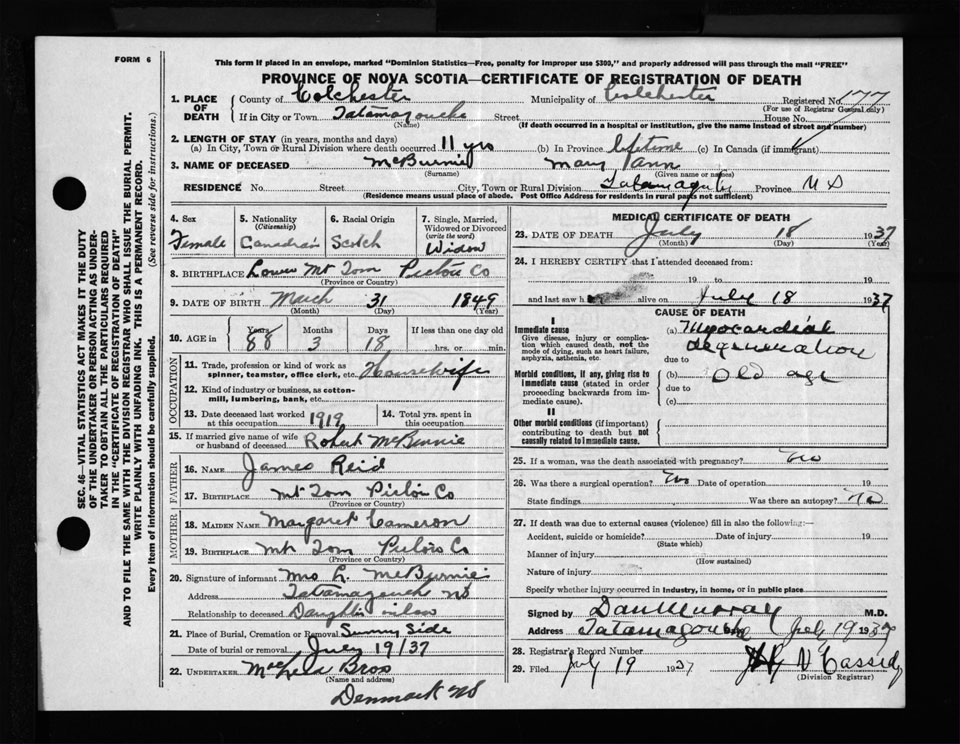 FORM 6
This form if placed in an envelope, marked "Dominion Statistics—Free, penalty for improper use $300," and properly addressed will pass through the mail "FREE"
PROVINCE OF NOVA SCOTIA—CERTIFICATE OF REGISTRATION OF DEATH
1. PLACE OF DEATH { County of Colchester Municipality of Colchester Registered No. 177
(For use of Registrar General only)
If in City or Town Tatamagouche Street House No.
(Name) (If death occurred in a hospital or institution, give the name instead of street and number)
2. LENGTH OF STAY (in years, months and days)
(a) In City, Town or Rural Division where death occurred 11 yrs (b) In Province lifetime (c) In Canada (if immigrant)
3. NAME OF DECEASED McBurnie Mary Ann
(Surname) (Given name or names)
RESIDENCE No. Street City, Town or Rural Division Province N S
(Residence means usual place of abode. Post Office Address for residents in rural parts not sufficient)
4. Sex Female
5. Nationality (Citizenship) Canadian
6. Racial Origin Scotch
7. Single, Married, Widowed or Divorced (write the word) Widow
8. BIRTHPLACE Lower Mt Tom Pictou Co
(Province or Country)
9. DATE OF BIRTH March 31 1849
(Month) (Day) (Years)
10. AGE in { Years 88 Months 3 Days 18 If less than one day old hrs. or min.
OCCUPATION
11. Trade, profession or kind of work as spinner, teamster, office clerk, etc. Housewife
12. Kind of industry or business, as cotton-mill, lumbering, bank, etc.
13. Date deceased last worked at this occupation 1919
14. Total yrs. spent in this occupation
15. If married give name of wife or husband of deceased Robert McBurnie
FATHER
16. NAME James Reid
17. BIRTHPLACE Mt Tom Pictou Co
(Province or Country)
MOTHER
18. MAIDEN NAME Margaret Cameron
19. BIRTHPLACE Mt Tom Pictou Co
(Province or Country)
20. Signature of informant Mrs L. McBurnie
Address Tatamagouche NS
Relationship to deceased Daughter inlaw
21. Place of Burial, Cremation or Removal Sunny Side
Date of burial or removal July 19/37
22. UNDERTAKER Bros
(Name and address)
Denmark NS
MEDICAL CERTIFICATE OF DEATH
23. DATE OF DEATH July 18 1937
(Month) (Day) (Year)
24. I HEREBY CERTIFY that I attended deceased from:
19 to 19
and last saw h alive on July 18 1937
CAUSE OF DEATH
I
Immediate cause
Give disease, injury or complication which caused death, not the mode of dying, such as heart failure, asphyxia, asthenia, etc.
(a) Myocardial degeneration
due to
Morbid conditions, if any, giving rise to immediate cause (stated in order proceeding backwards from immediate cause).
(b) Old age
due to
(c)
II
Other morbid conditions (if important) contributing to death but not causally related to immediate cause.
25. If a woman, was the death associated with pregnancy? No
26. Was there a surgical operation? No Date of operation 19
State findings Was there an autopsy? No
27. If death was due to external causes (violence) fill in also the following:—
Accident, suicide or homicide? Date of injury 19
(State which)
Manner of injury
(How sustained)
Nature of injury
Specify whether injury occurred in industry, in home, or in public place
Signed by Dan Murray M.D.
Address Tatamagouche July 19 1937
28. Registrar's Record Number
29. Filed July 19 1937 Cassidy
(Division Registrar)
SEC. 46—VITAL STATISTICS ACT MAKES IT THE DUTY
OF THE UNDERTAKER OR PERSON ACTING AS UNDER-
TAKER TO OBTAIN ALL THE PARTICULARS REQUIRED
IN THE "CERTIFICATE OF REGISTRATION OF DEATH"
AND TO FILE THE SAME WITH THE DIVISION REGISTRAR WHO SHALL ISSUE THE BURIAL PERMIT.
WRITE PLAINLY WITH UNFADING INK. THIS IS A PERMANENT RECORD.
Every item of information should be carefully supplied. (See reverse side for instructions.)